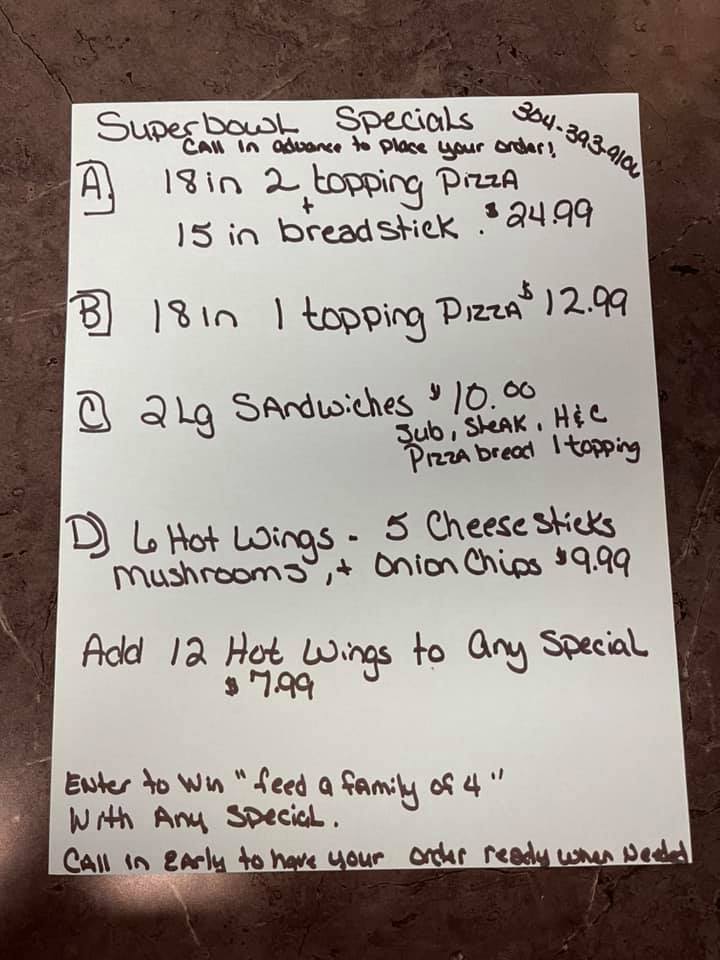 Superbowl Specials 304-393-9106
Call in advance to place your order!
A) 18 in 2 topping Pizza
+
15 in breadstick . $24.99
B) 18 in 1 topping Pizza $12.99
C) 2 Lg Sandwiches $10.00
Sub, Steak, H&C
Pizza bread 1 topping
D) 6 Hot Wings - 5 Cheese Sticks
Mushrooms, + Onion Chips $9.99
Add 12 Hot Wings to Any Special
$7.99
Enter to Win "feed a family of 4"
With Any Special.
Call in Early to have your order ready when Needed